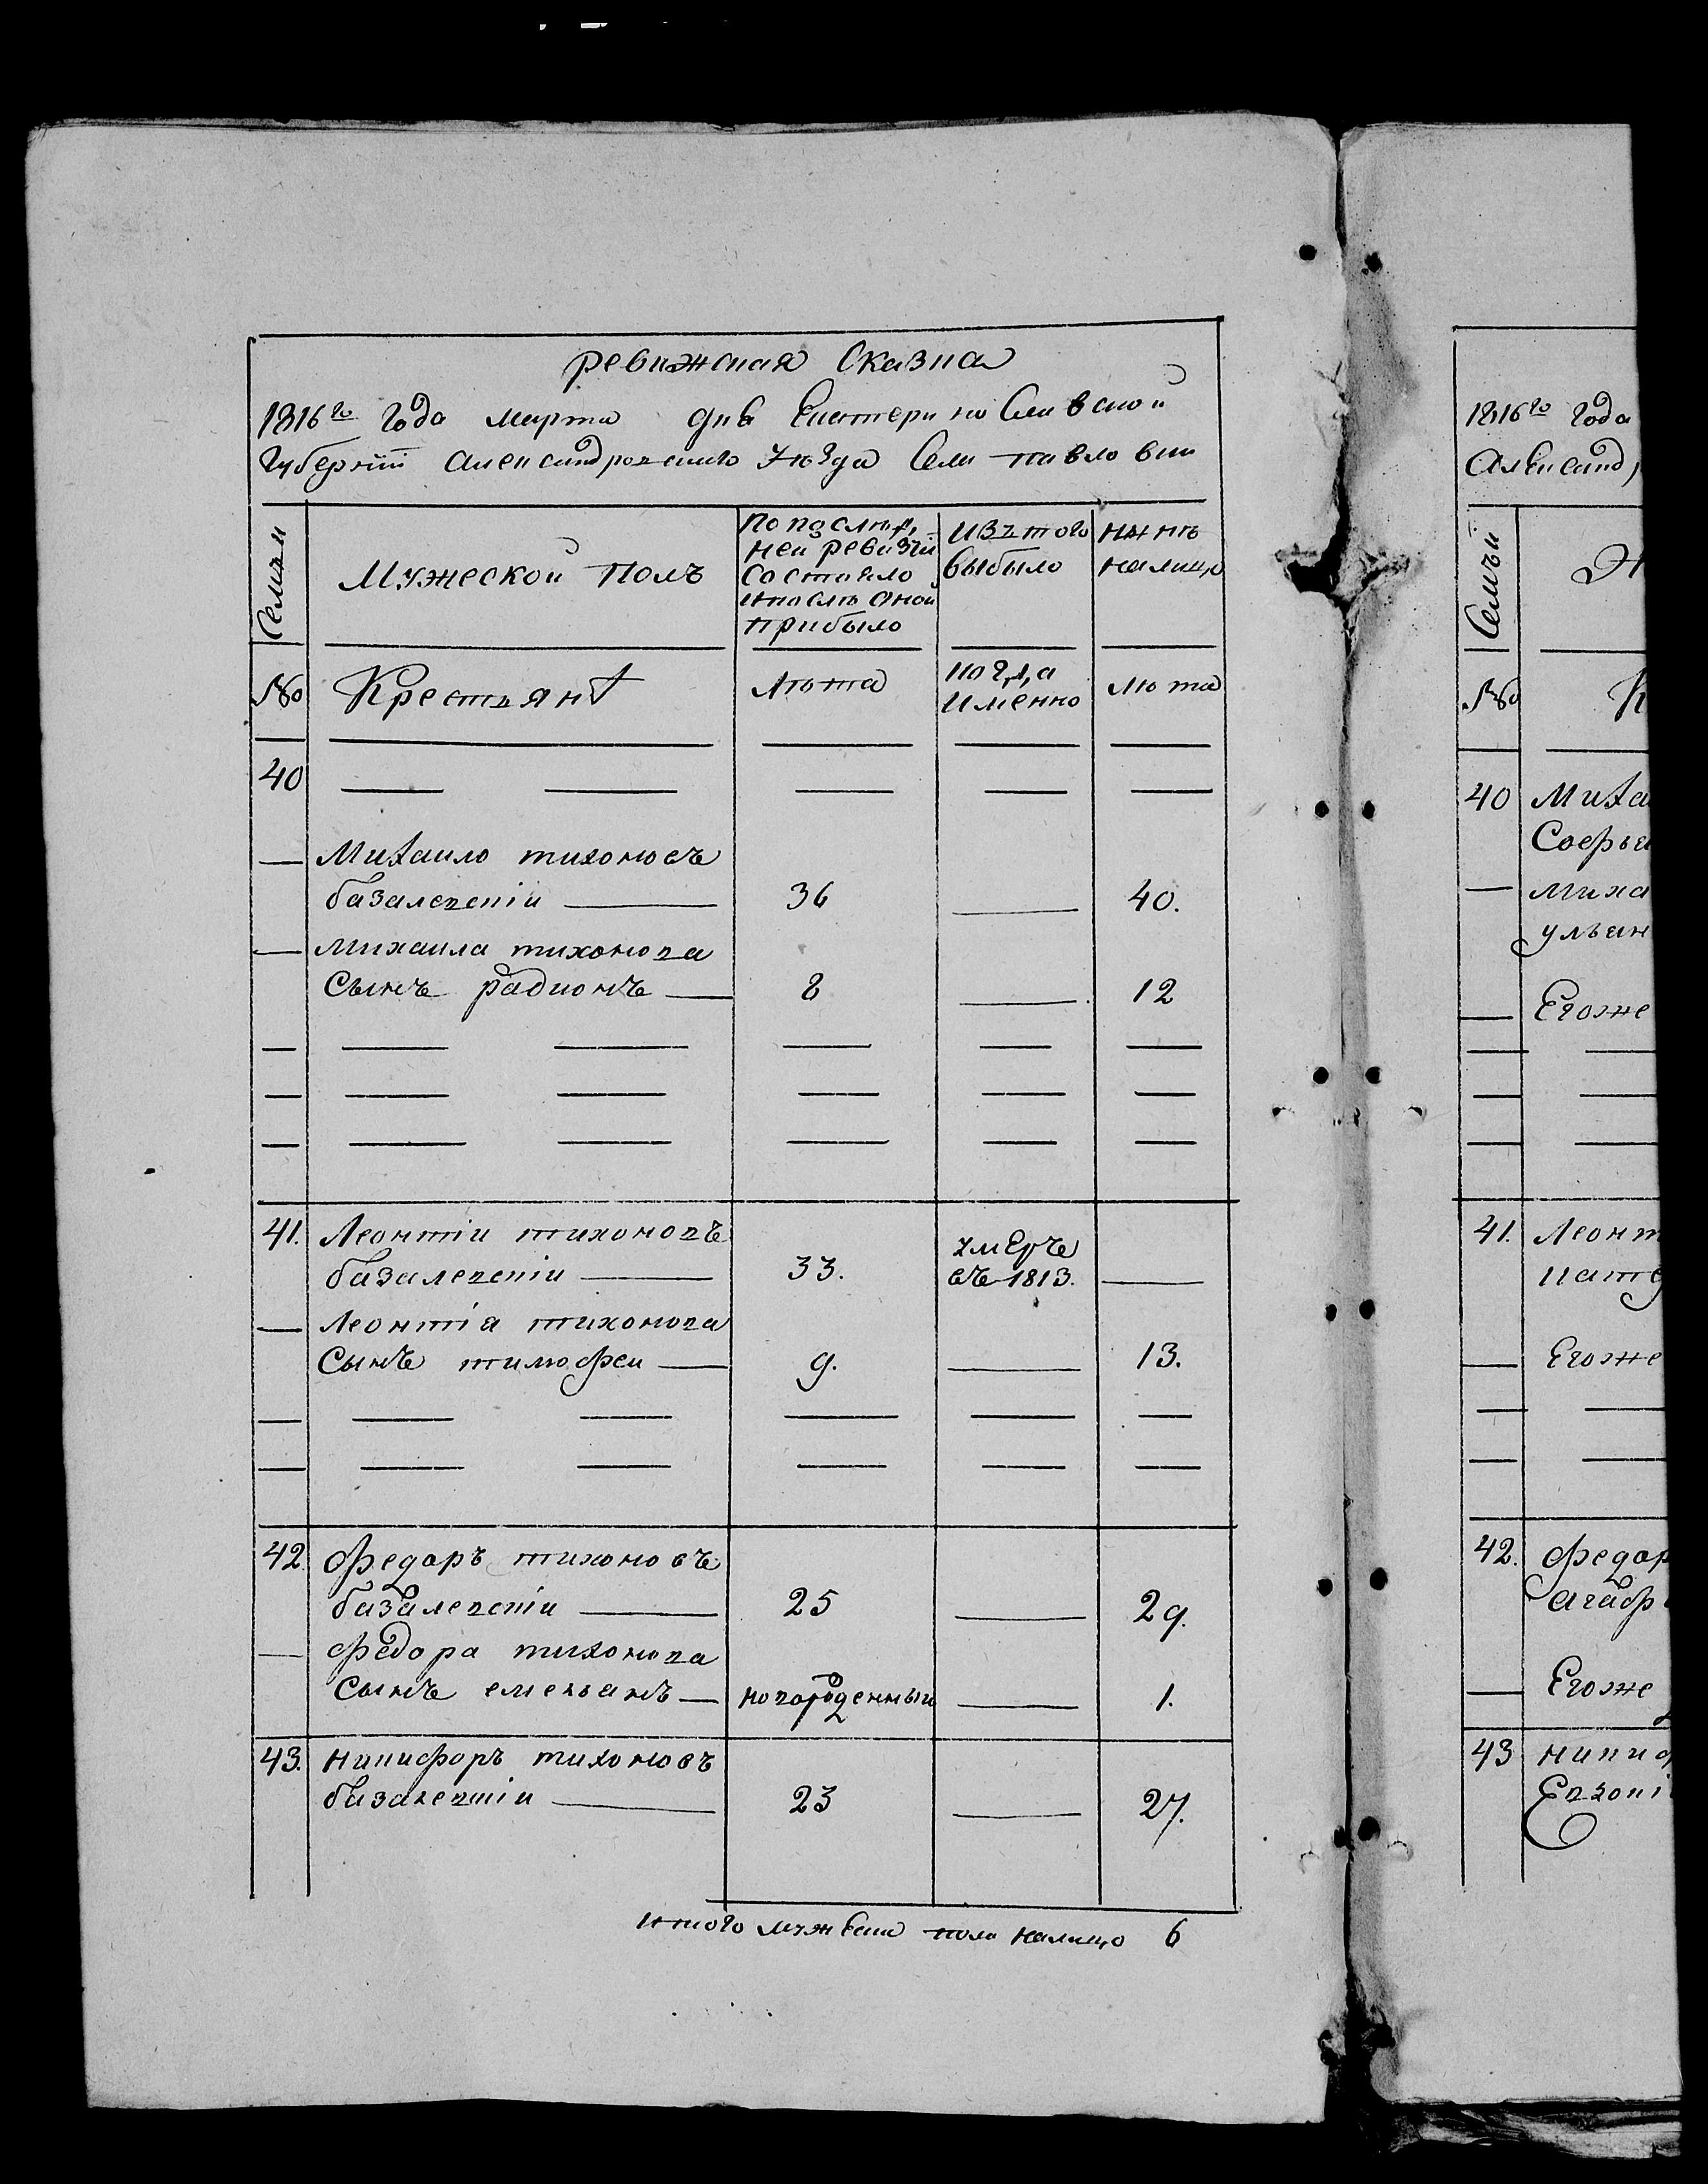 ревижская Сказка
1816го Года марта дня Екатеринославской
Губернии Александровскаго Уѣзда Села павловки
Семьи
Мужеской Полъ
По послѣд,
ней ревизіи
состояло
и послѣ оной
прибыло
Изъ того
выбыло
Нынѣ
налицо
№
Крестьянъ
лѣта
когда
Именно
лѣта
40
Михаило тихоновъ
базалевскіи 36 40.
михаила тихонова
Сынъ радионъ 8 12
41. Леонтіи тихоновъ
базалевскіи 33. умеръ въ 1813.
Леонтіа тихонова
Сынъ тимофеи 9. 13.
42. федоръ тихоновъ
базалевскіи 25 29.
федора тихонова
Сынъ емельянъ новорожденныи 1.
43. никифоръ тихоновъ
базалевскіи 23 27.
Итого мужеска пола налицо 6
1816го Года
Александ
Семьи
№
40 Миха
Софья
миха
ульян
Егоже
41. Леонт
Егоже
42. федор
Егоже
43 никиф